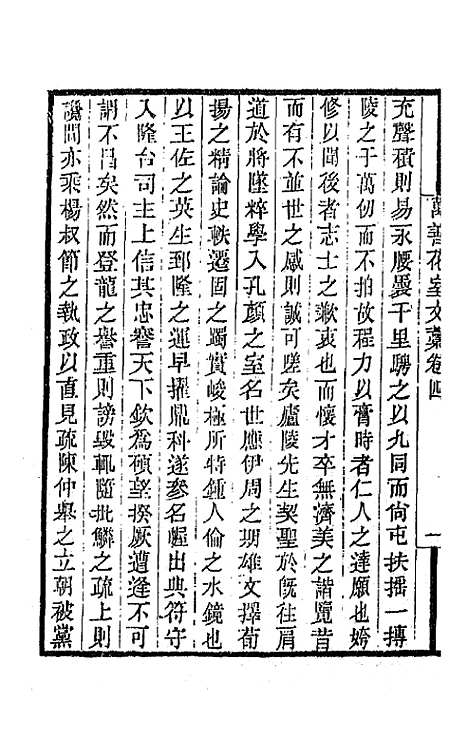 萬善花室文藁卷四
一
充聲積則易永腰褭千里騁之以九同而尙屯扶播一摶
陵之于萬仞而不拍故程力以膏時者仁人之達願也姱
修以聞後者志士之歉哀也而懷才卒無濟美之諧覽昔
而有不並世之感則誠可嗟矣廬陵先生契聖於旣往肩
道於將墜粹學入孔顏之室名世應伊周之期雄文擇荀
揚之精論史軼遷固之躅實峻極所特鍾人倫之水鏡也
以王佐之英生郅隆之運早擢鼎科遂參名幄出典符守
入隆台司主上信其忠謇天下欽爲碩望揆厥遭逢不可
謂不昌矣然而登龍之譽重則謗毀輒隨批鱗之疏上則
讒間亦乘楊叔節之執政以直見疏陳仲舉之立朝被黨